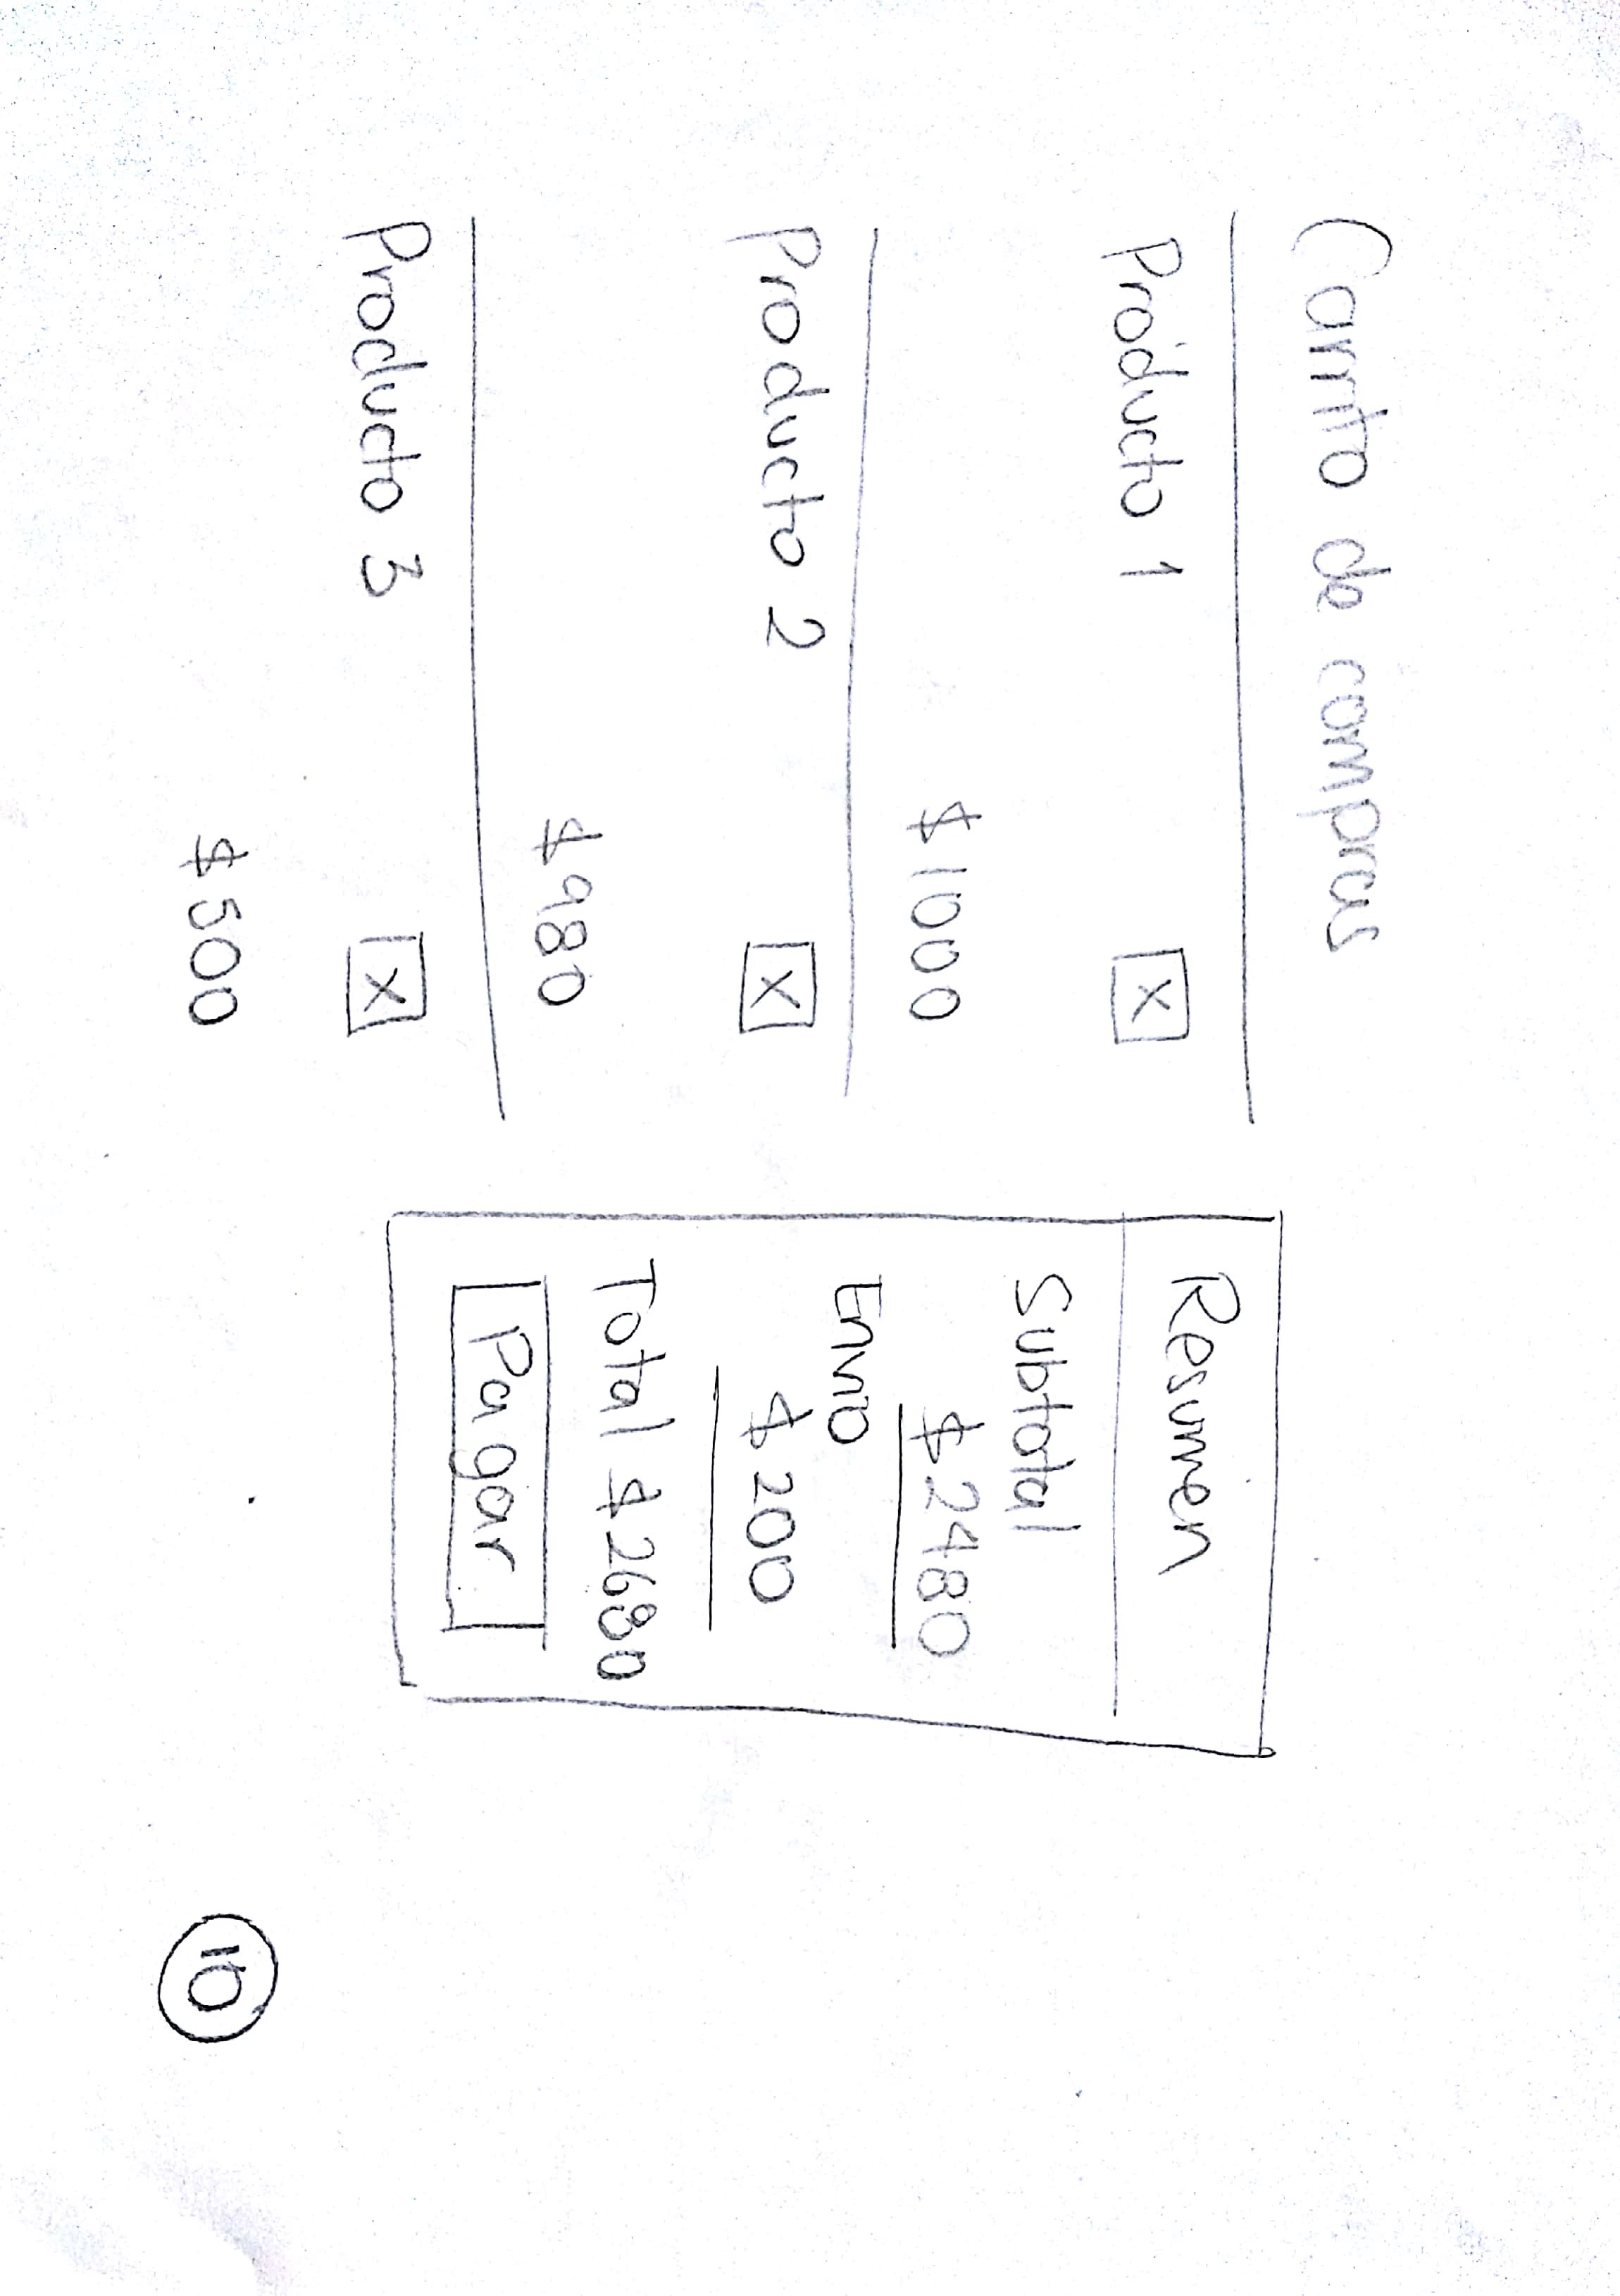 Carrito de compras
Producto 1 X
$1000
Producto 2 X
$980
Producto 3 X
$500
Resumen
Subtotal
$2480
Envio
$200
Total $2680
Pagar
10